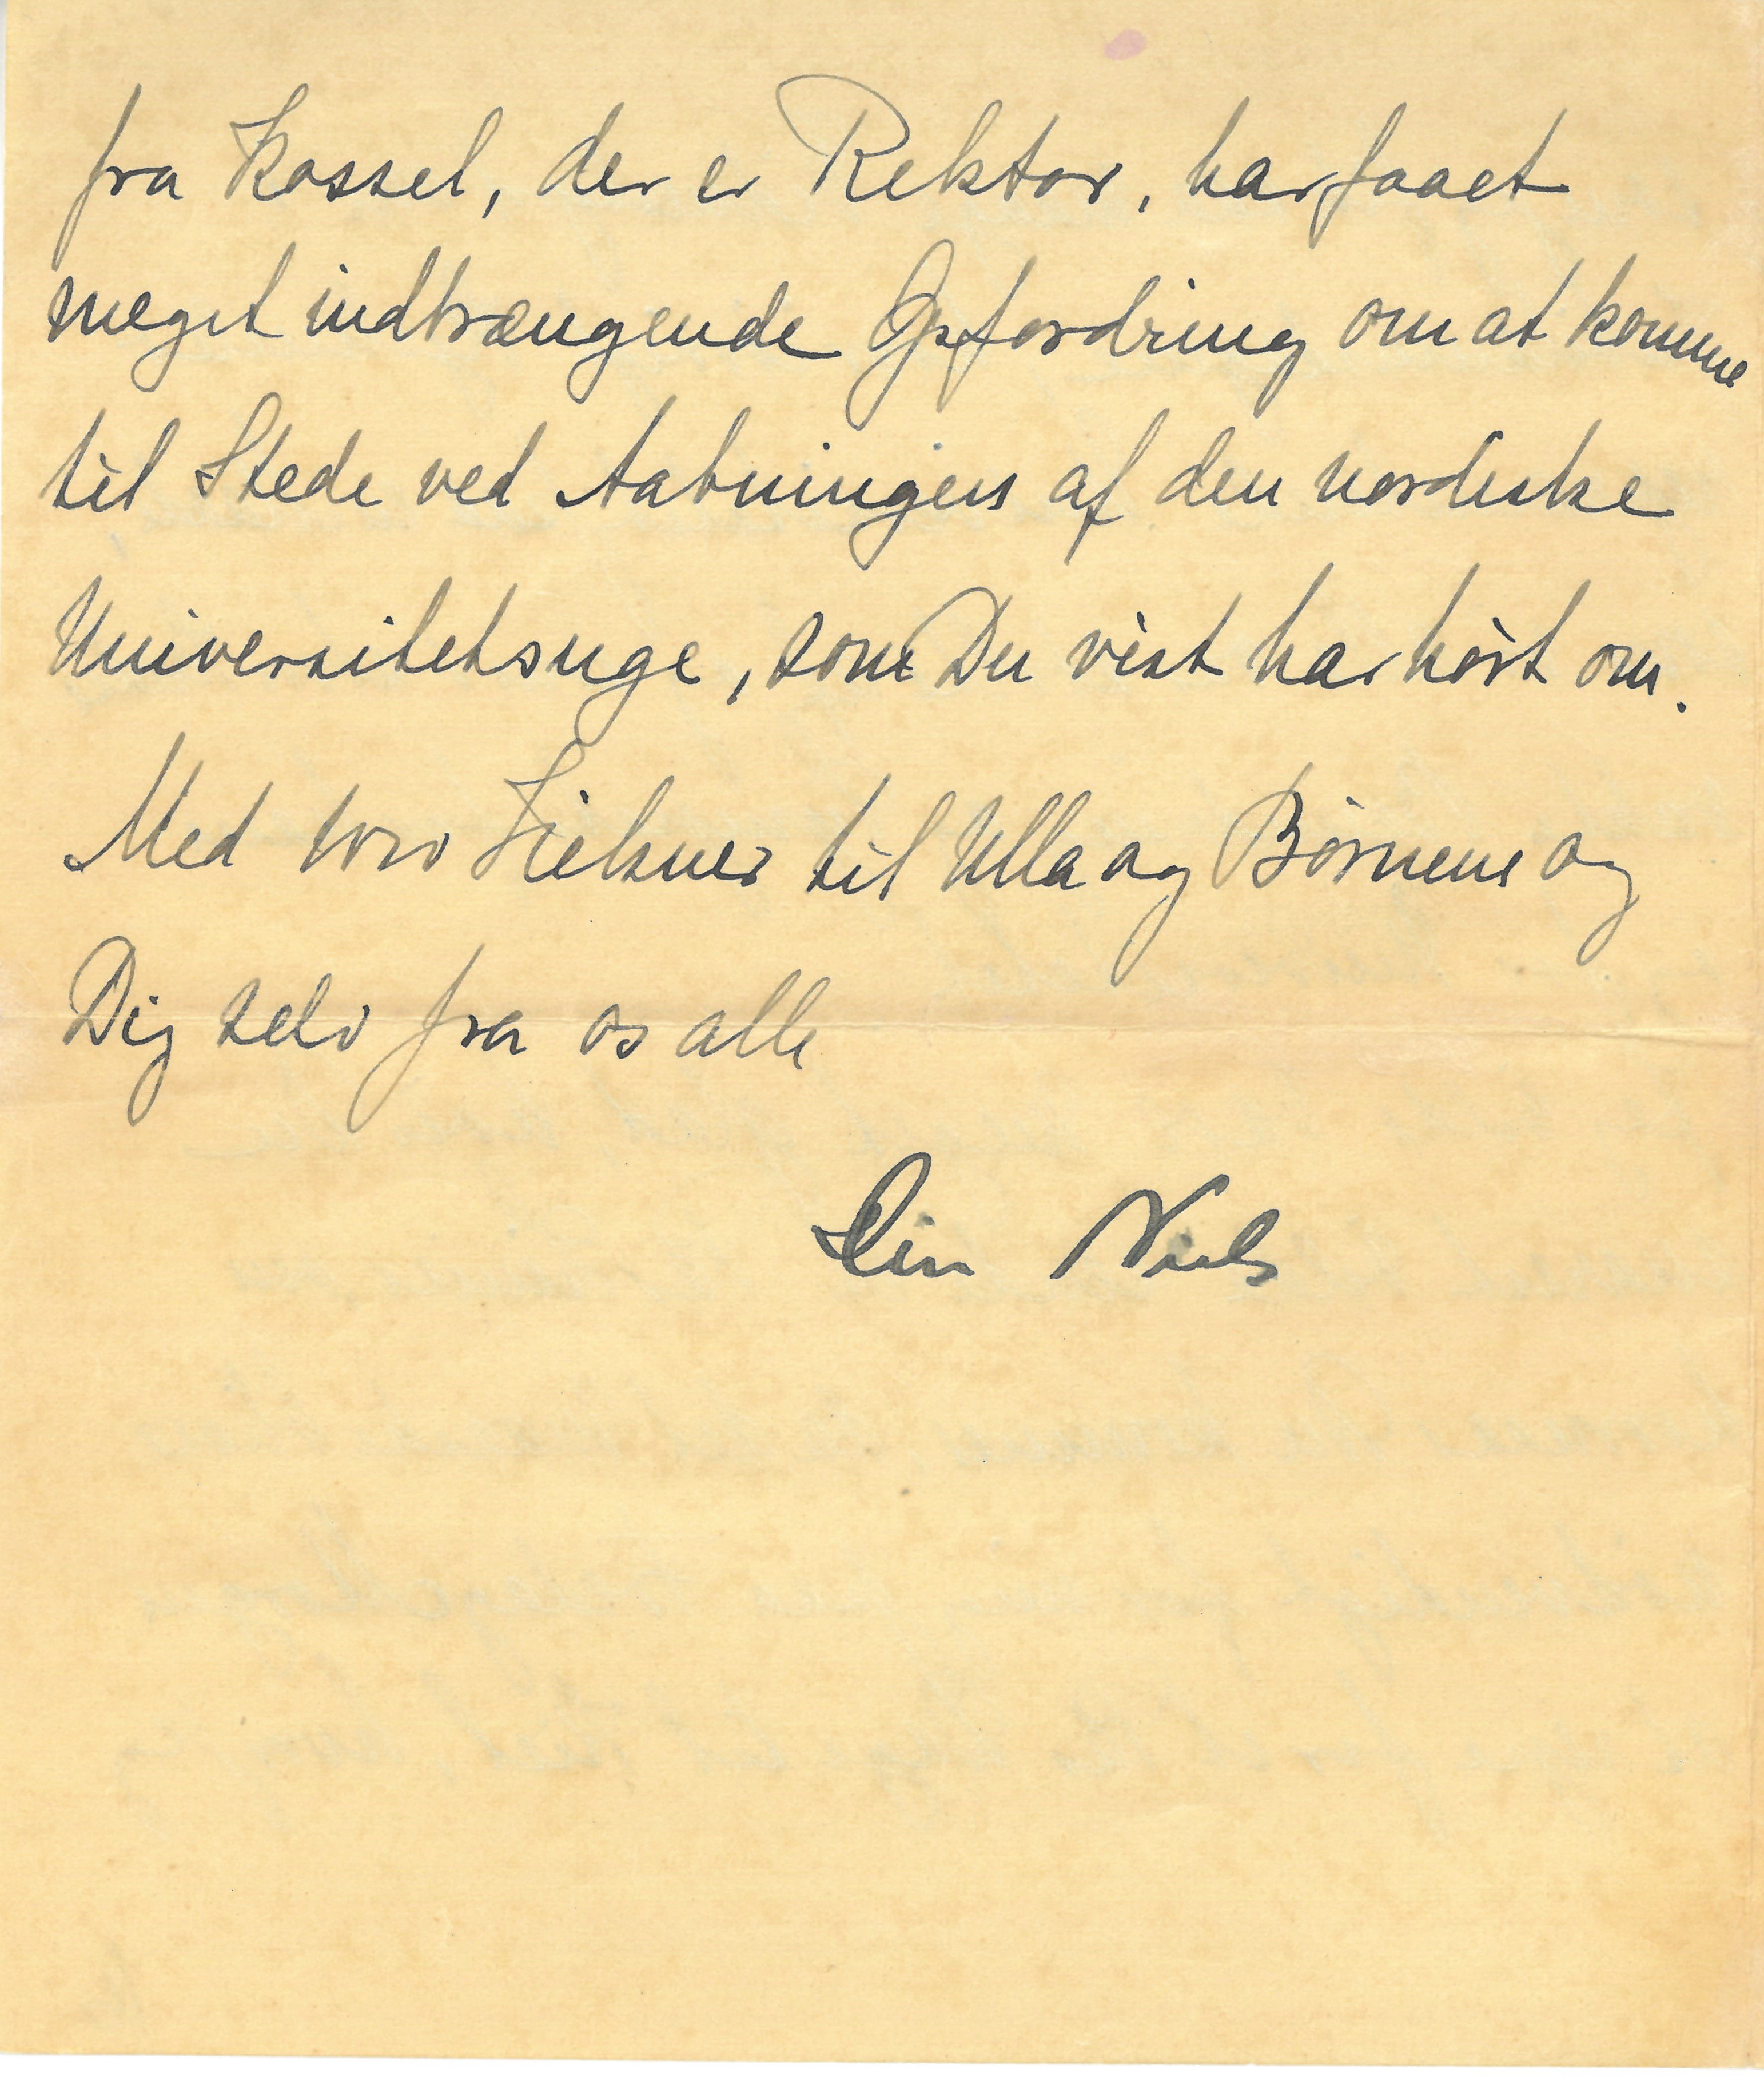 fra Kossel, der er Rektor, har faaet
meget indtrængende Opfordring om at komme
til Stede ved Aabningen af den nordiske
Universitetsuge, som Du vist har hørt om.
Med Hilsner til Ulla og Børnene og
Dig selv fra os alle
Din Niels